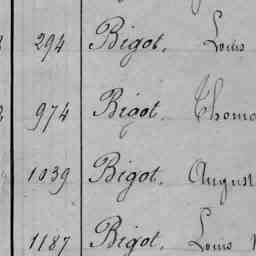 294 Bigot, Louis
974 Bigot, Thoma
1039 Bigot, August
1187 Bigot, Louis